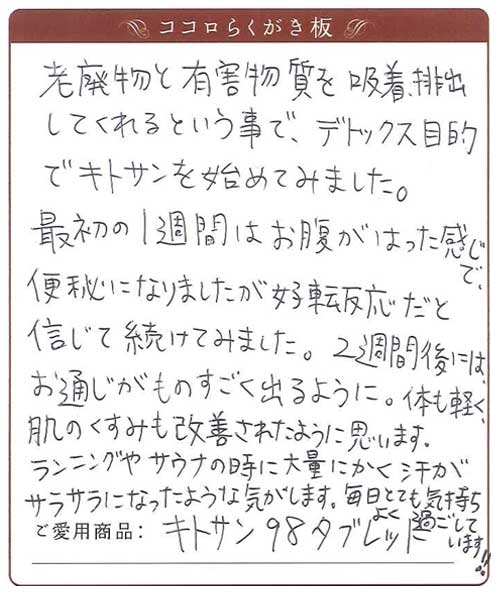 ココロらくがき板
老廃物と有害物質を吸着、排出
してくれるという事で、デトックス目的
でキトサンを始めてみました。
最初の1週間はお腹がはった感じで、
便秘になりましたが好転反応だと
信じて続けてみました。2週間後には、
お通じがものすごく出るように。体も軽く、
肌のくすみも改善されたように思います。
ランニングやサウナの時に大量にかく汗が
サラサラになったような気がします。毎日とても気持ち
よく過ごしています!!
ご愛用商品：キトサン98タブレット